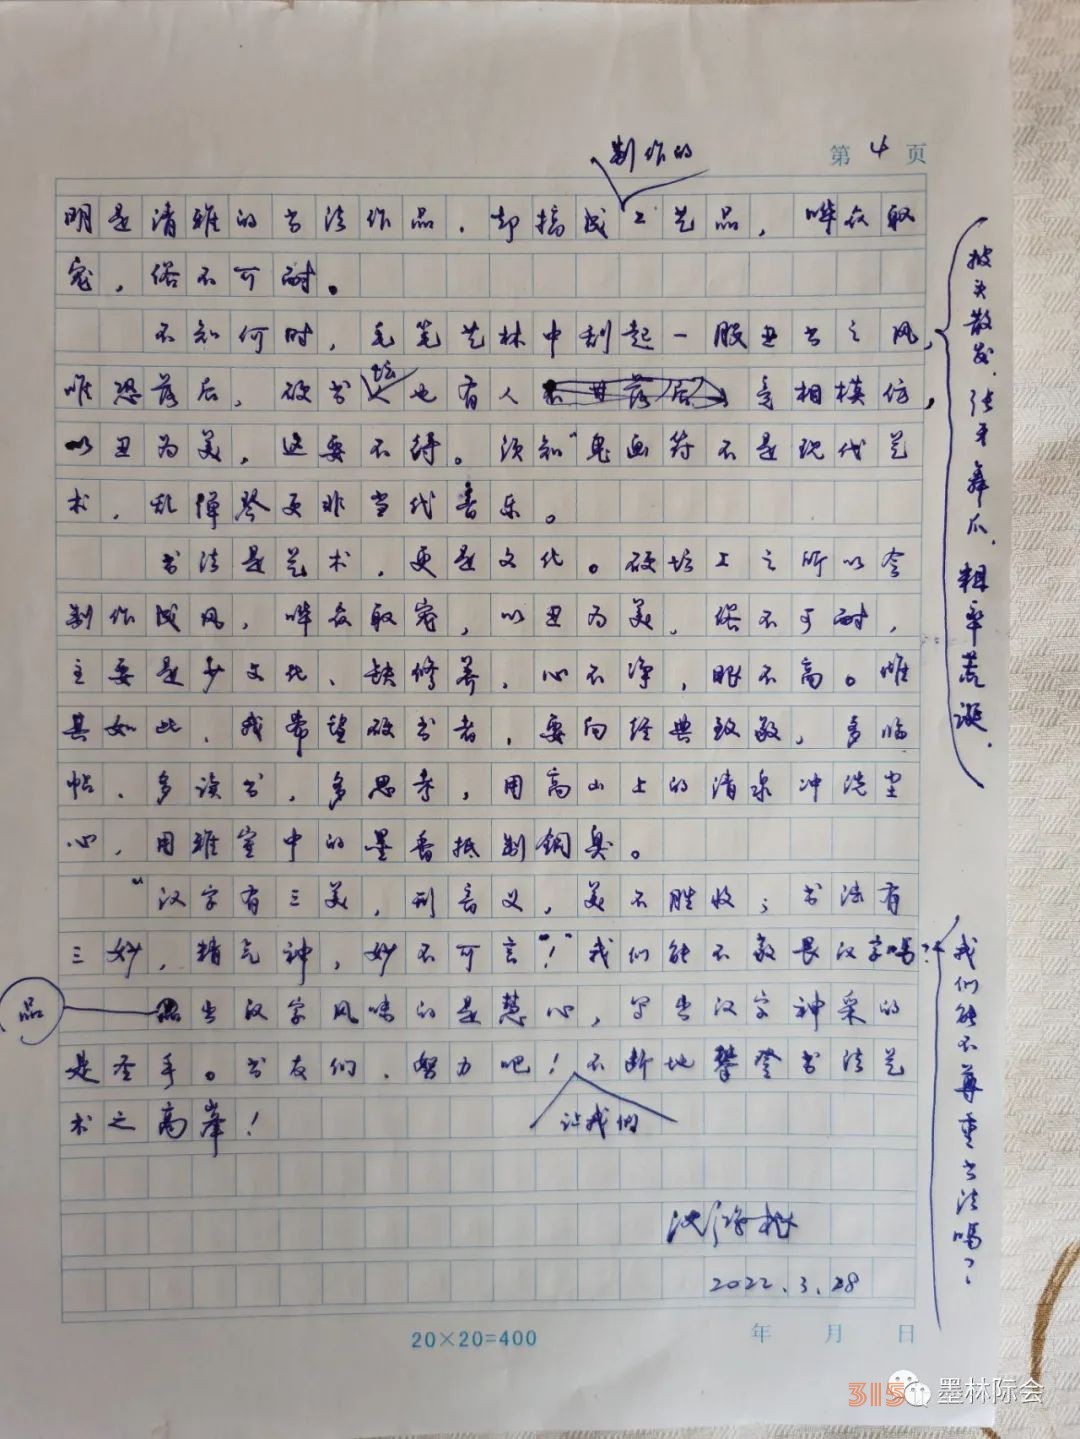 第 4 页
制作的
明是清雅的书法作品，却搞成工艺品，哗众取
宠，俗不可耐。
不知何时，毛笔艺林中刮起一股丑书之风，
披头散发、张牙舞爪、粗率荒诞、
坛
唯恐落后，硬书也有人竞相模仿，
以丑为美，这要不得。须知"鬼画符不是现代艺
术，乱弹琴更非当代音乐。
书法是艺术，更是文化。硬坛上之所以会
制作成风，哗众取宠，以丑为美，俗不可耐，
主要是少文化、缺修养，心不净，眼不高。唯
其如此，我希望硬书者，要向经典致敬，多临
帖、多读书，多思考，用高山上的清泉冲洗尘
心，用雅室中的墨香抵制铜臭。
"汉字有三美，形音义，美不胜收；书法有
三妙，精气神，妙不可言"！"我们能不敬畏汉字吗？
我们能不尊重书法吗？
品
出汉字风味的是慧心，写出汉字神采的
是圣手。书友们，努力吧！不断地攀登书法艺
让我们
术之高峰！
2022.3.28
20×20=400
年 月 日
315
墨林际会